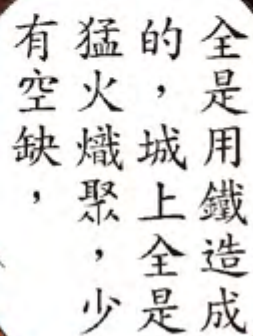 全是用鐵造成
的，城上全是
猛火熾聚，少
有空缺，